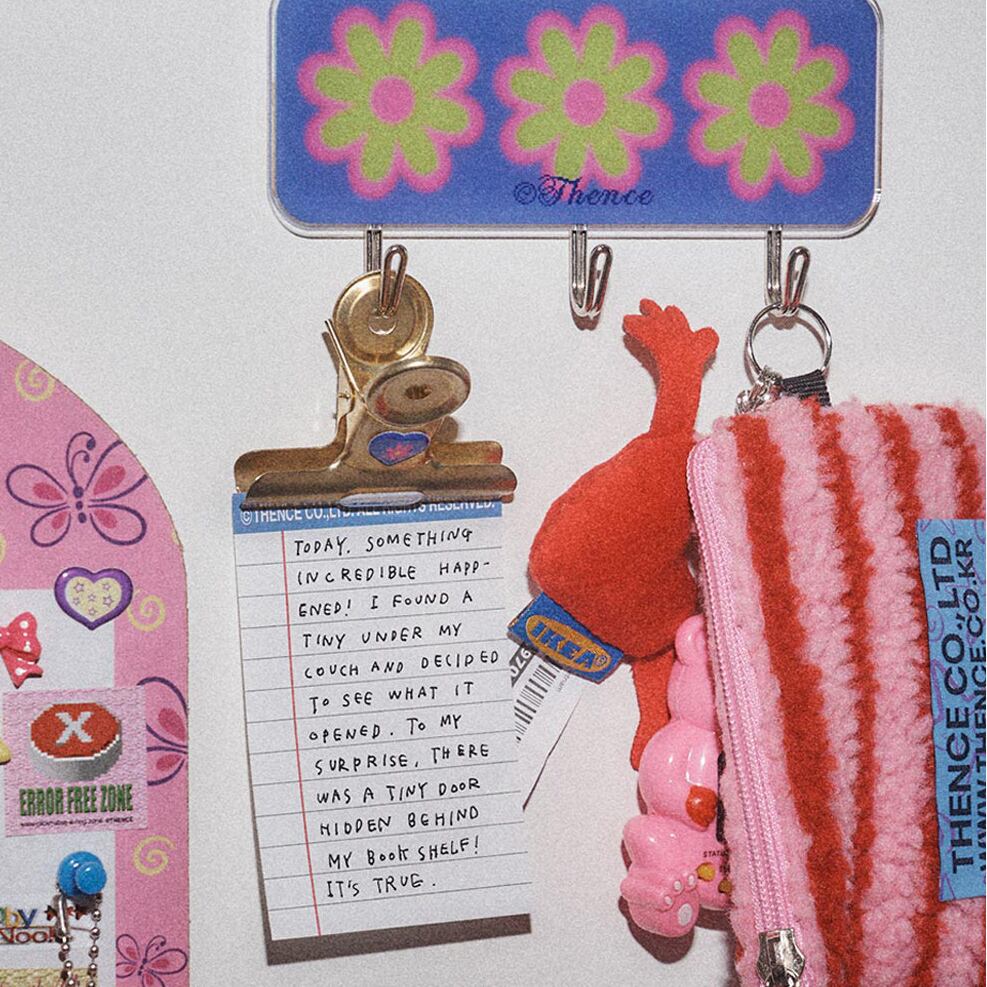 ©Thence
©THENCE CO.,LTD. ALL RIGHTS RESERVED.
TODAY, SOMETHING
INCREDIBLE HAPP-
ENED! I FOUND A
TINY UNDER MY
COUCH AND DECIDED
TO SEE WHAT IT
OPENED. TO MY
SURPRISE, THERE
WAS A TINY DOOR
HIDDEN BEHIND
MY BOOK SHELF!
IT'S TRUE.
IKEA®
THENCE CO.,LTD
WWW.THENCE.CO.KR
X
ERROR FREE ZONE
Nook